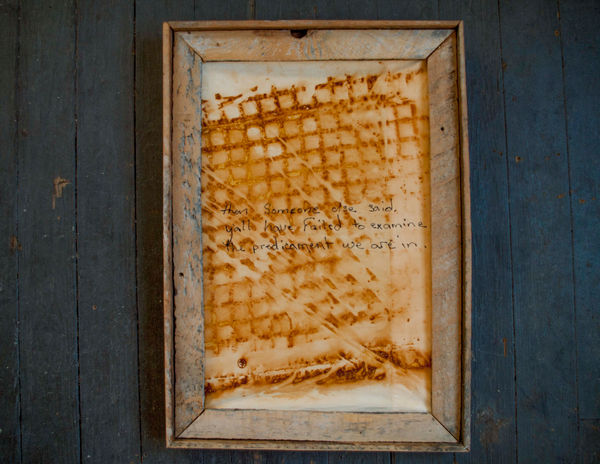 then Someone else said,
yall have failed to examine
the predicament we are in.